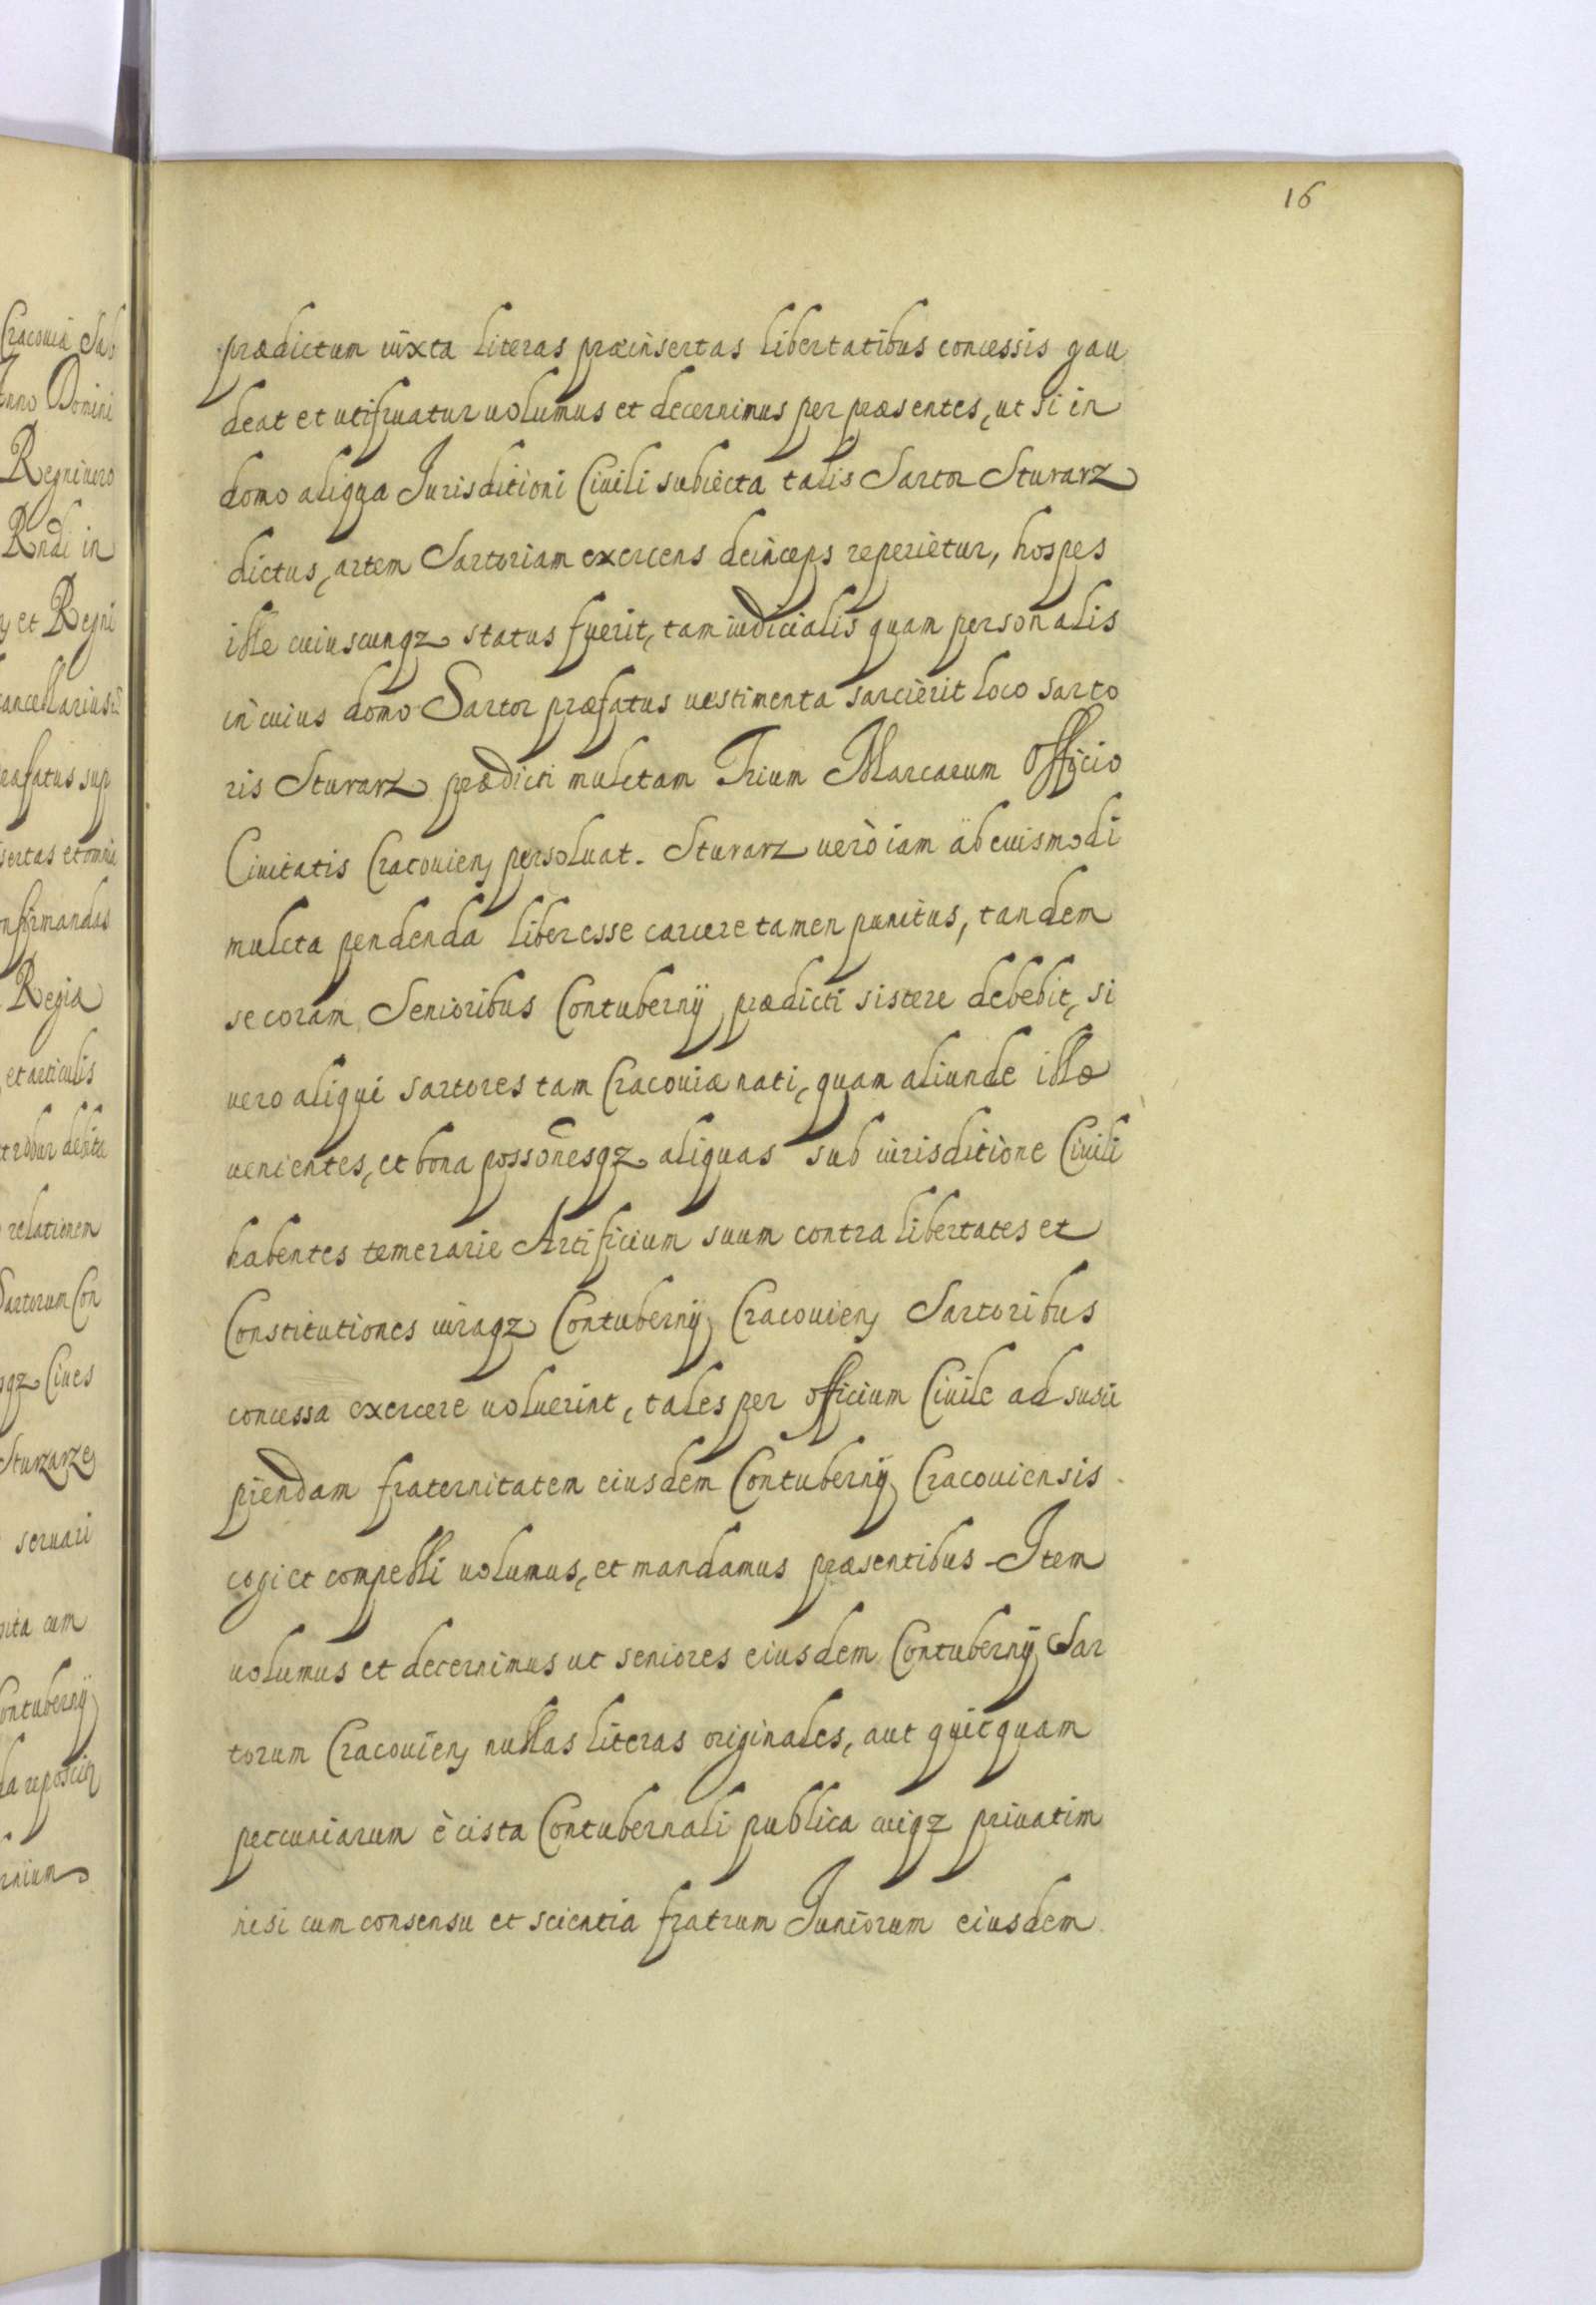 16
prædictum iuxta literas præinsertas libertatibus concessis gau
deat et utifruatur uolumus et decernimus per præsentes, ut si in
domo aliqua Jurisditioni Ciuili subiecta talis Sartor Sturarz
dictus, artem Sartoriam exercens deinceps reperietur, hospes
ille cuiuscunqz status fuerit, tam iudicialis quam personalis
in cuius domo Sartor præfatus uestimenta sarcierit loco sarto
ris Sturarz prædicti mulctam Trium Marcarum Officio
Ciuitatis Cracouien persoluat. Sturarz uerò iam ab euismodi
mulcta pendenda liber esse carcere tamen punitus, tandem
se coram Senioribus Contubernij prædicti sistere debebit, si
uero aliqui sartores tam Cracouiæ nati, quam aliunde illo
uenientes, et bona possonesqz aliquas sub iurisditione Ciuili
habentes temerarie Artificium suum contra libertates et
Constitutiones iuraqz Contubernij Cracouien Sartoribus
concessa exercere uoluerint, tales per officium Ciuile ad susci
piendam fraternitatem eiusdem Contubernij Cracouiensis
cogi et compelli uolumus, et mandamus præsentibus Item
uolumus et decernimus ut seniores eiusdem Contubernij Sar
torum Cracouien nullas literas originales, aut quicquam
peccuniarum è cista Contubernali publica cuiqz priuatim
nisi cum consensu et scientia fratrum Juniorum eiusdem
Cracouiæ
Domini
Regni uero
Rndi in
et Regni
Regia
et articulis
relationem
Sartorum Con
Ciues
Sturarze
seruari
cum